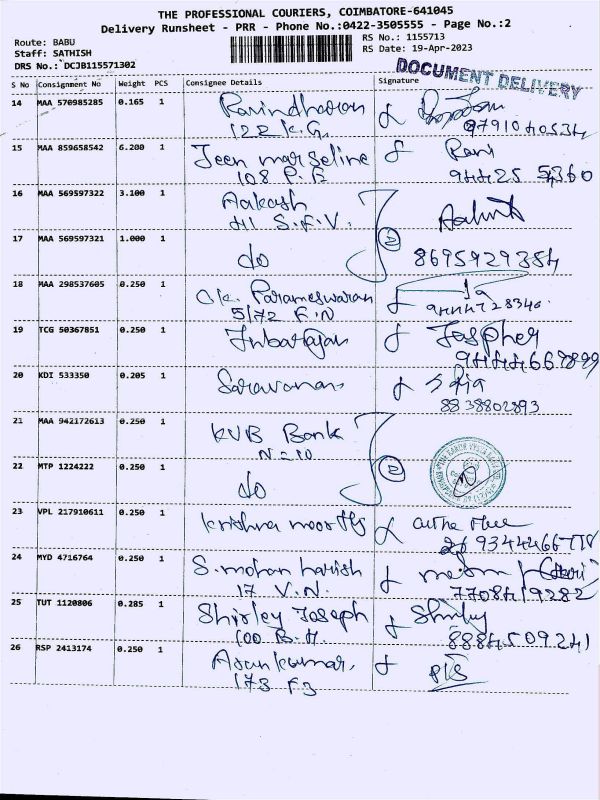 THE PROFESSIONAL COURIERS, COIMBATORE-641045
Delivery Runsheet - PRR - Phone No.:0422-3505555 - Page No.:2
Route: BABU
Staff: SATHISH
DRS No.: DCJB115571302
RS No.: 1155713
RS Date: 19-Apr-2023
DOCUMENT DELIVERY
S No Consignment No Weight PCS Consignee Details Signature
14 MAA 570985285 0.165 1 Ravindharan
122 K.G. 9791040534
15 MAA 859658542 6.200 1 Jeen marseline Rani
108 P.E 94425 54360
16 MAA 569597322 3.100 1 Aakash
41 S.F.V.
17 MAA 569597321 1.000 1 do 2 8695929384
18 MAA 298537605 0.250 1 C.K. Parameswaran
5/72 F.N 9444728340
19 TCG 50367851 0.250 1 Inbarajan Jaspher
20 KDI 533350 0.205 1 Saravanan
8838802893
21 MAA 942172613 0.250 1 KVB Bank
N-10
22 MTP 1224222 0.250 1 do 2
23 VPL 217910611 0.250 1 Krishna moorthy
24 MYD 4716764 0.250 1 S. mohan harish
17 V.N. 7708419282
25 TUT 1120806 0.285 1 Shirley Joseph Shirley
100 B.H. 8884509241
26 RSP 2413174 0.250 1 Arunkumar,
173 F3